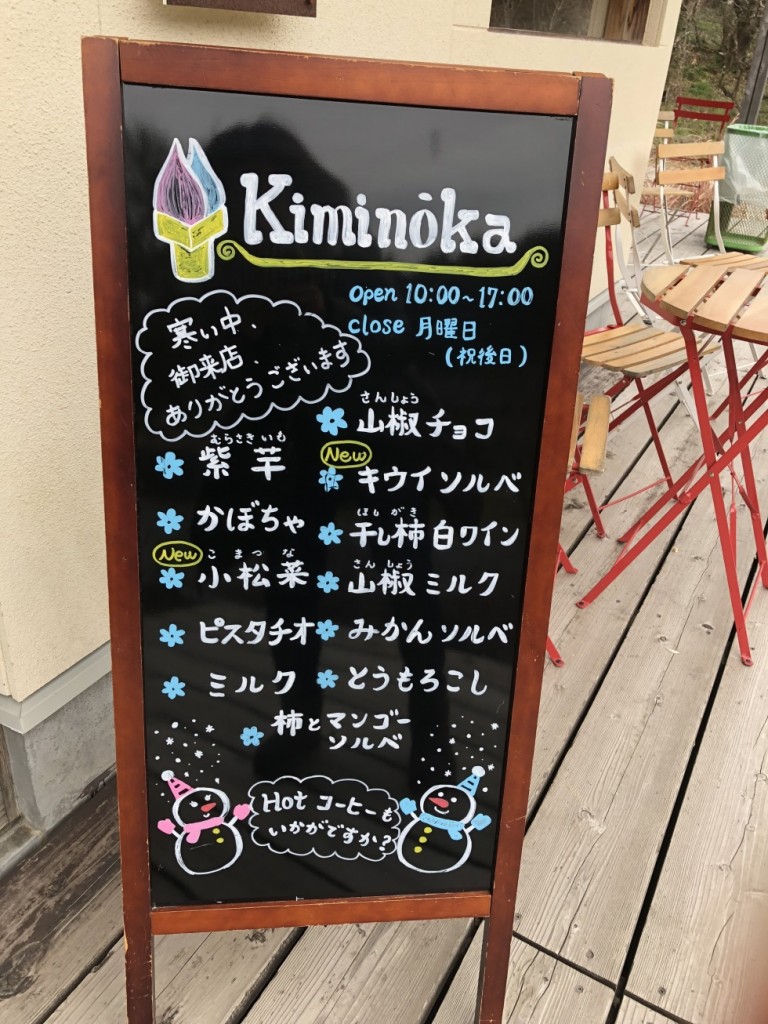 Kiminóka
open 10:00～17:00
close 月曜日
(祝後日)
寒い中、
御来店、
ありがとうございます
むらさき いも
紫芋
かぼちゃ
New
こまつな
小松菜
ピスタチオ
ミルク
さんしょう
山椒チョコ
New
キウイソルベ
ほしがき
干し柿白ワイン
さんしょう
山椒ミルク
みかんソルベ
とうもろこし
柿とマンゴー
ソルベ
Hot コーヒーも
いかがですか?